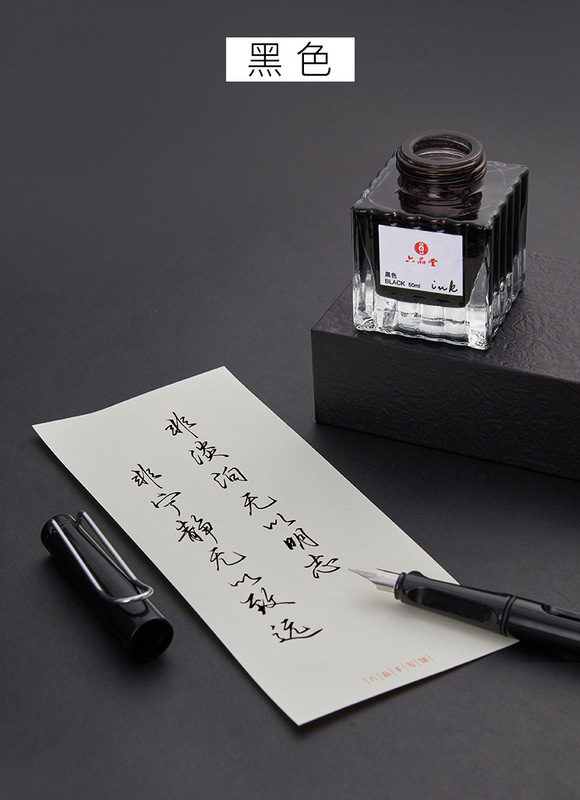 黑色
六品堂
黑色
BLACK 50ml
ink
非淡泊无以明志
非宁静无以致远